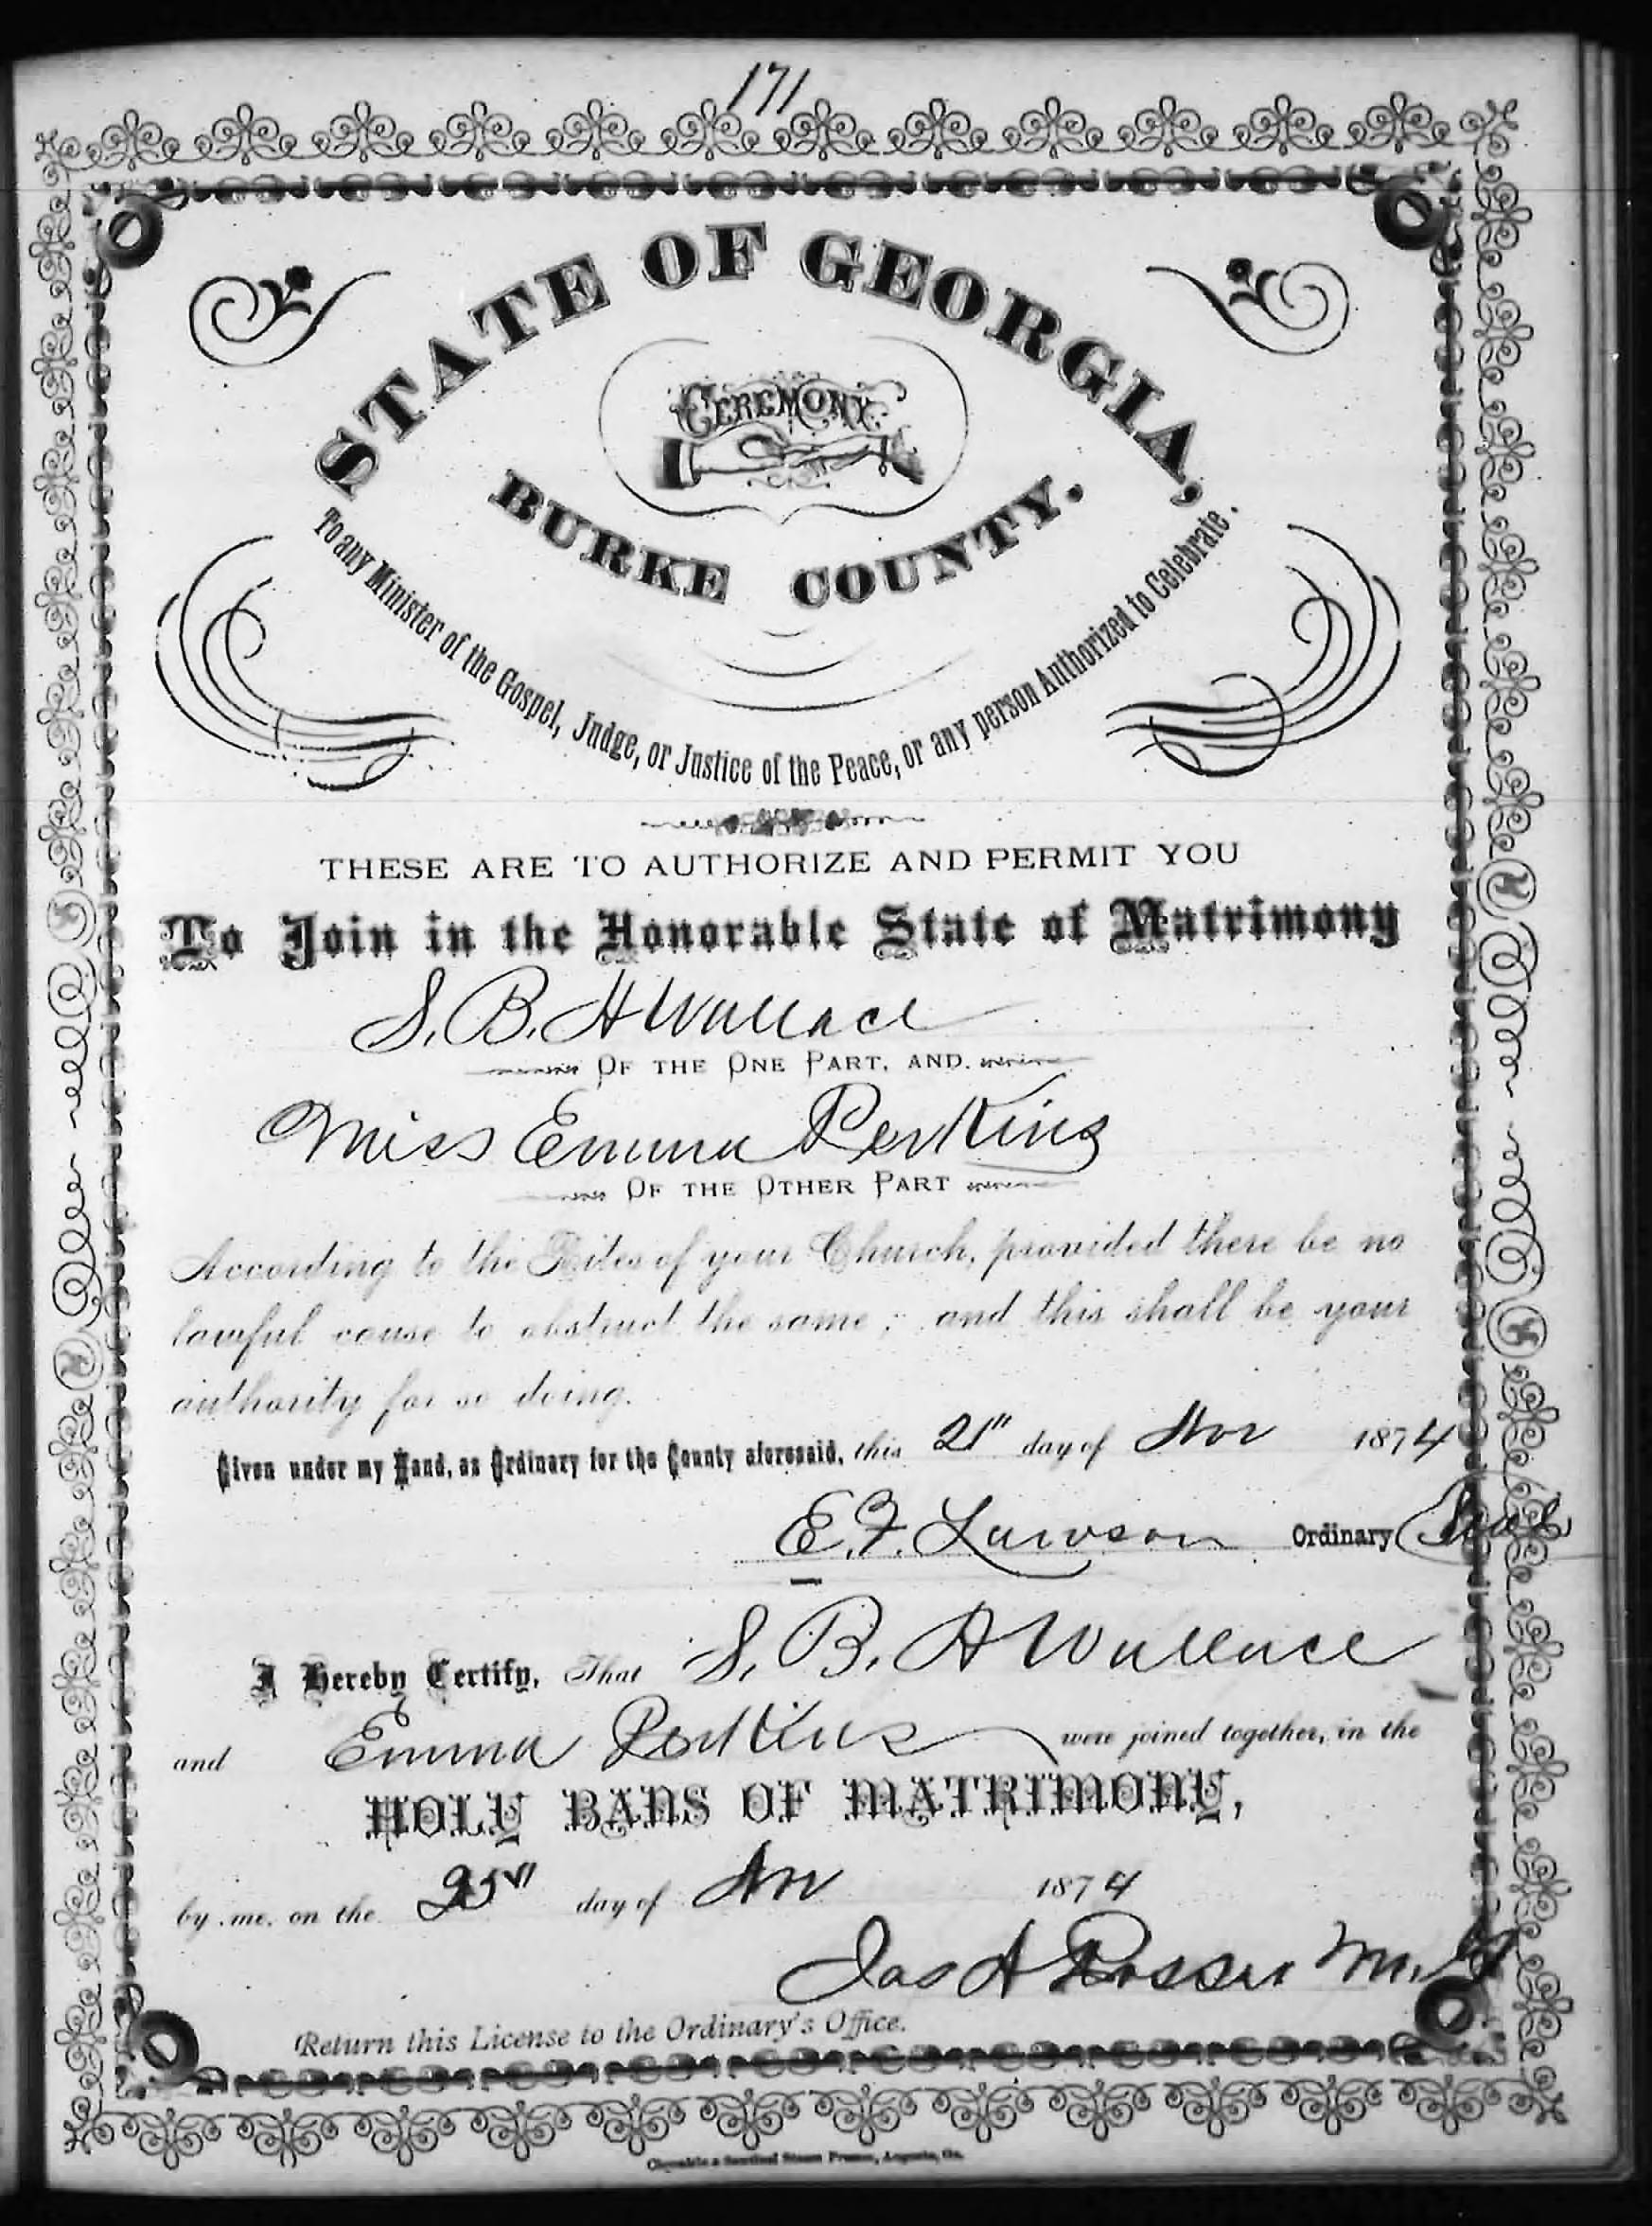 171
STATE OF GEORGIA,
CEREMONY.
BURKE COUNTY.
To any Minister of the Gospel, Judge, or Justice of the Peace, or any person Authorized to Celebrate.
THESE ARE TO AUTHORIZE AND PERMIT YOU
To Join in the Honorable State of Matrimony
S. B. H Wallace
OF THE ONE PART, AND.
Miss Emma Perkins
OF THE OTHER PART
According to the Rites of your Church, provided there be no
lawful cause to obstruct the same; and this shall be your
authority for so doing.
Given under my Hand, as Ordinary for the County aforesaid, this 21" day of Nov 1874
E. F. Lawson Ordinary Seal
I Hereby Certify, That S. B. H Wallace
and Emma Perkins were joined together, in the
HOLY BANS OF MATRIMONY,
by me, on the 25" day of Nov 1874
Jas A Rosser M. G
Return this License to the Ordinary's Office.
Chronicle & Sentinel Steam Presses, Augusta, Ga.